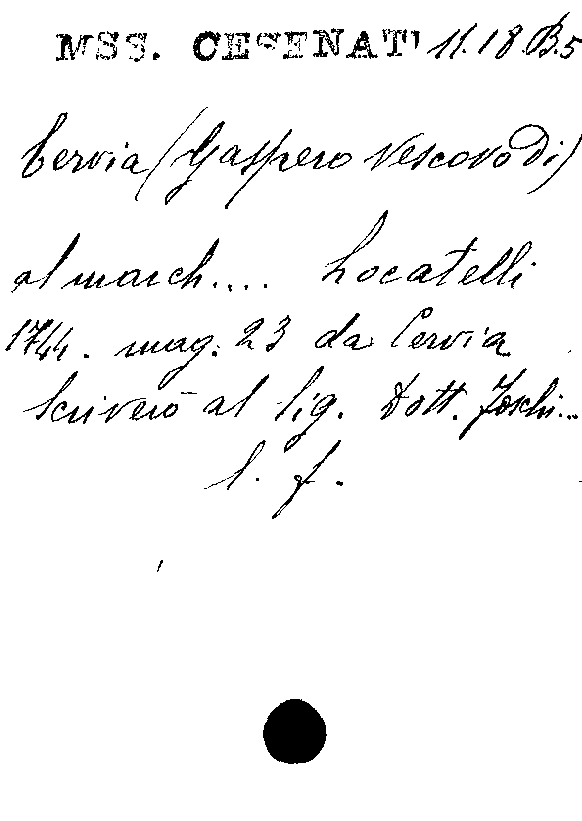 MSS. CESENATI 11.18.B.5
Cervia (Gaspero Vescovo di)
al march.... Locatelli
1744. mag. 23 da Cervia
Scriverò al sig. Dott. Foschi...
l. f.